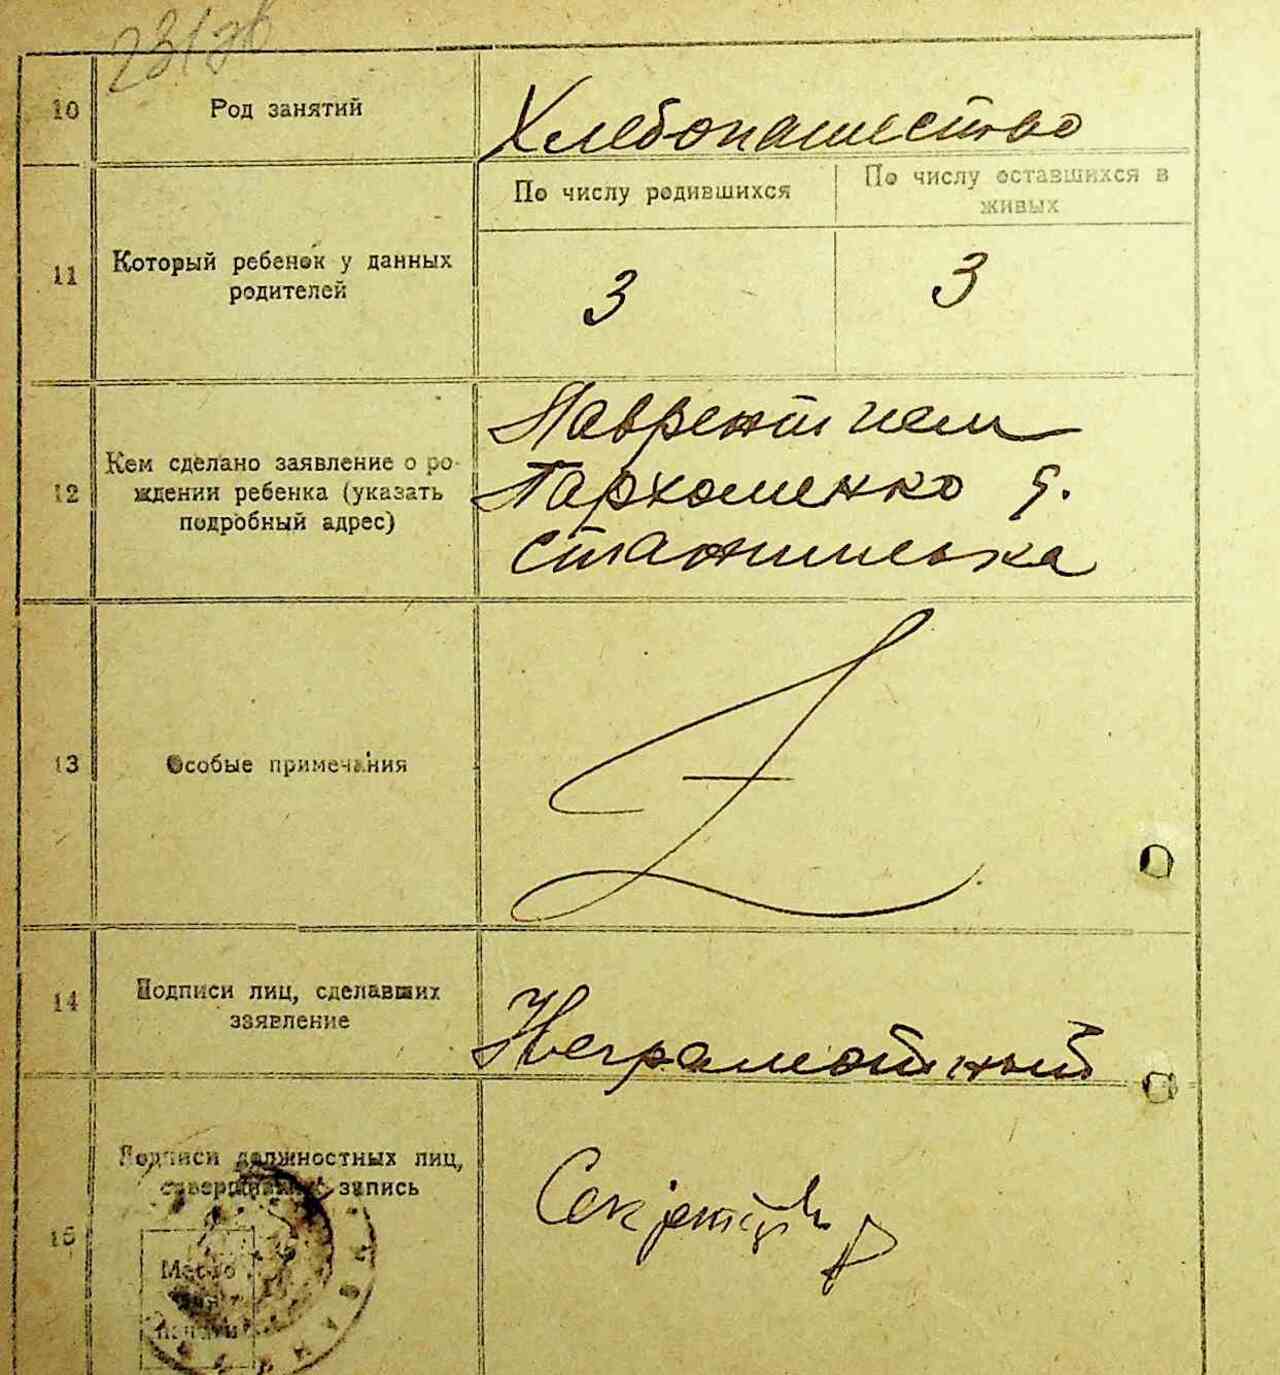 10 Род занятий Хлебопашество
По числу родившихся По числу оставшихся в
живых
11 Который ребенок у данных
родителей
3 3
12 Кем сделано заявление о ро-
ждении ребенка (указать
подробный адрес)
Лаврентием
Пархоменко д.
13 Особые примечания
14 Подписи лиц, сделавших
заявление
Неграмотный
15 Подписи должностных лиц,
совершивших запись
Место
для
печати